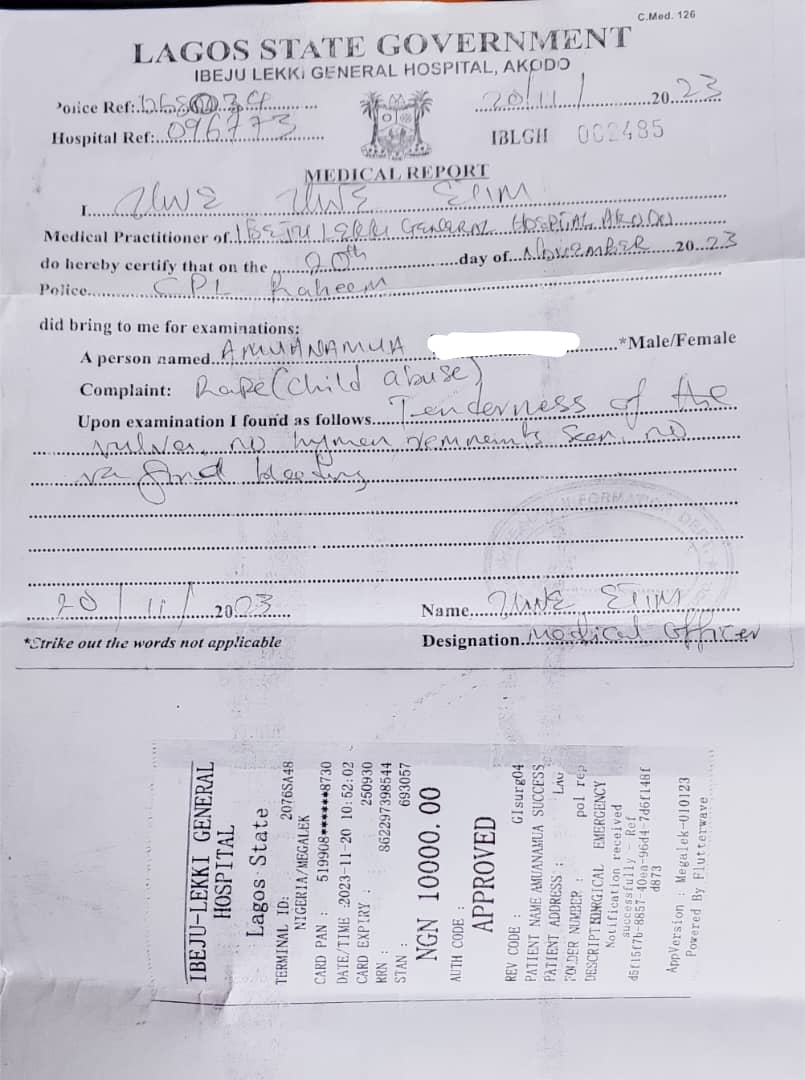 C.Med. 126
LAGOS STATE GOVERNMENT
IBEJU LEKKI GENERAL HOSPITAL, AKODO
Police Ref:
20/11/ 2023
Hospital Ref: 096773
IBLGH 002485
MEDICAL REPORT
I
Medical Practitioner of IBEJU LEKKI GENERAL HOSPITAL AKODO
do hereby certify that on the 20th day of NOVEMBER 2023
Police CPL Raheem
did bring to me for examinations:
A person named *Male/Female
Complaint: Rape (child abuse)
Upon examination I found as follows Tenderness of the
vulva, no hymen remnants seen, no
bleeding
20/11/2023
Name
*Strike out the words not applicable
Designation Medical Officer
IBEJU-LEKKI GENERAL
HOSPITAL
Lagos State
TERMINAL ID: 2076SA48
NIGERIA/MEGALEK
CARD PAN : 519908******8730
DATE/TIME :2023-11-20 10:52:02
CARD EXPIRY : 250930
RRN : 862297398544
STAN : 693057
NGN 10000.00
AUTH CODE :
APPROVED
REV CODE : GIsurg04
PATIENT NAME
PATIENT ADDRESS :
FOLDER NUMBER : pol rep
EMERGENCY
Notification received
successfully - Ref
AppVersion : Megalek-010123
Powered By Flutterwave